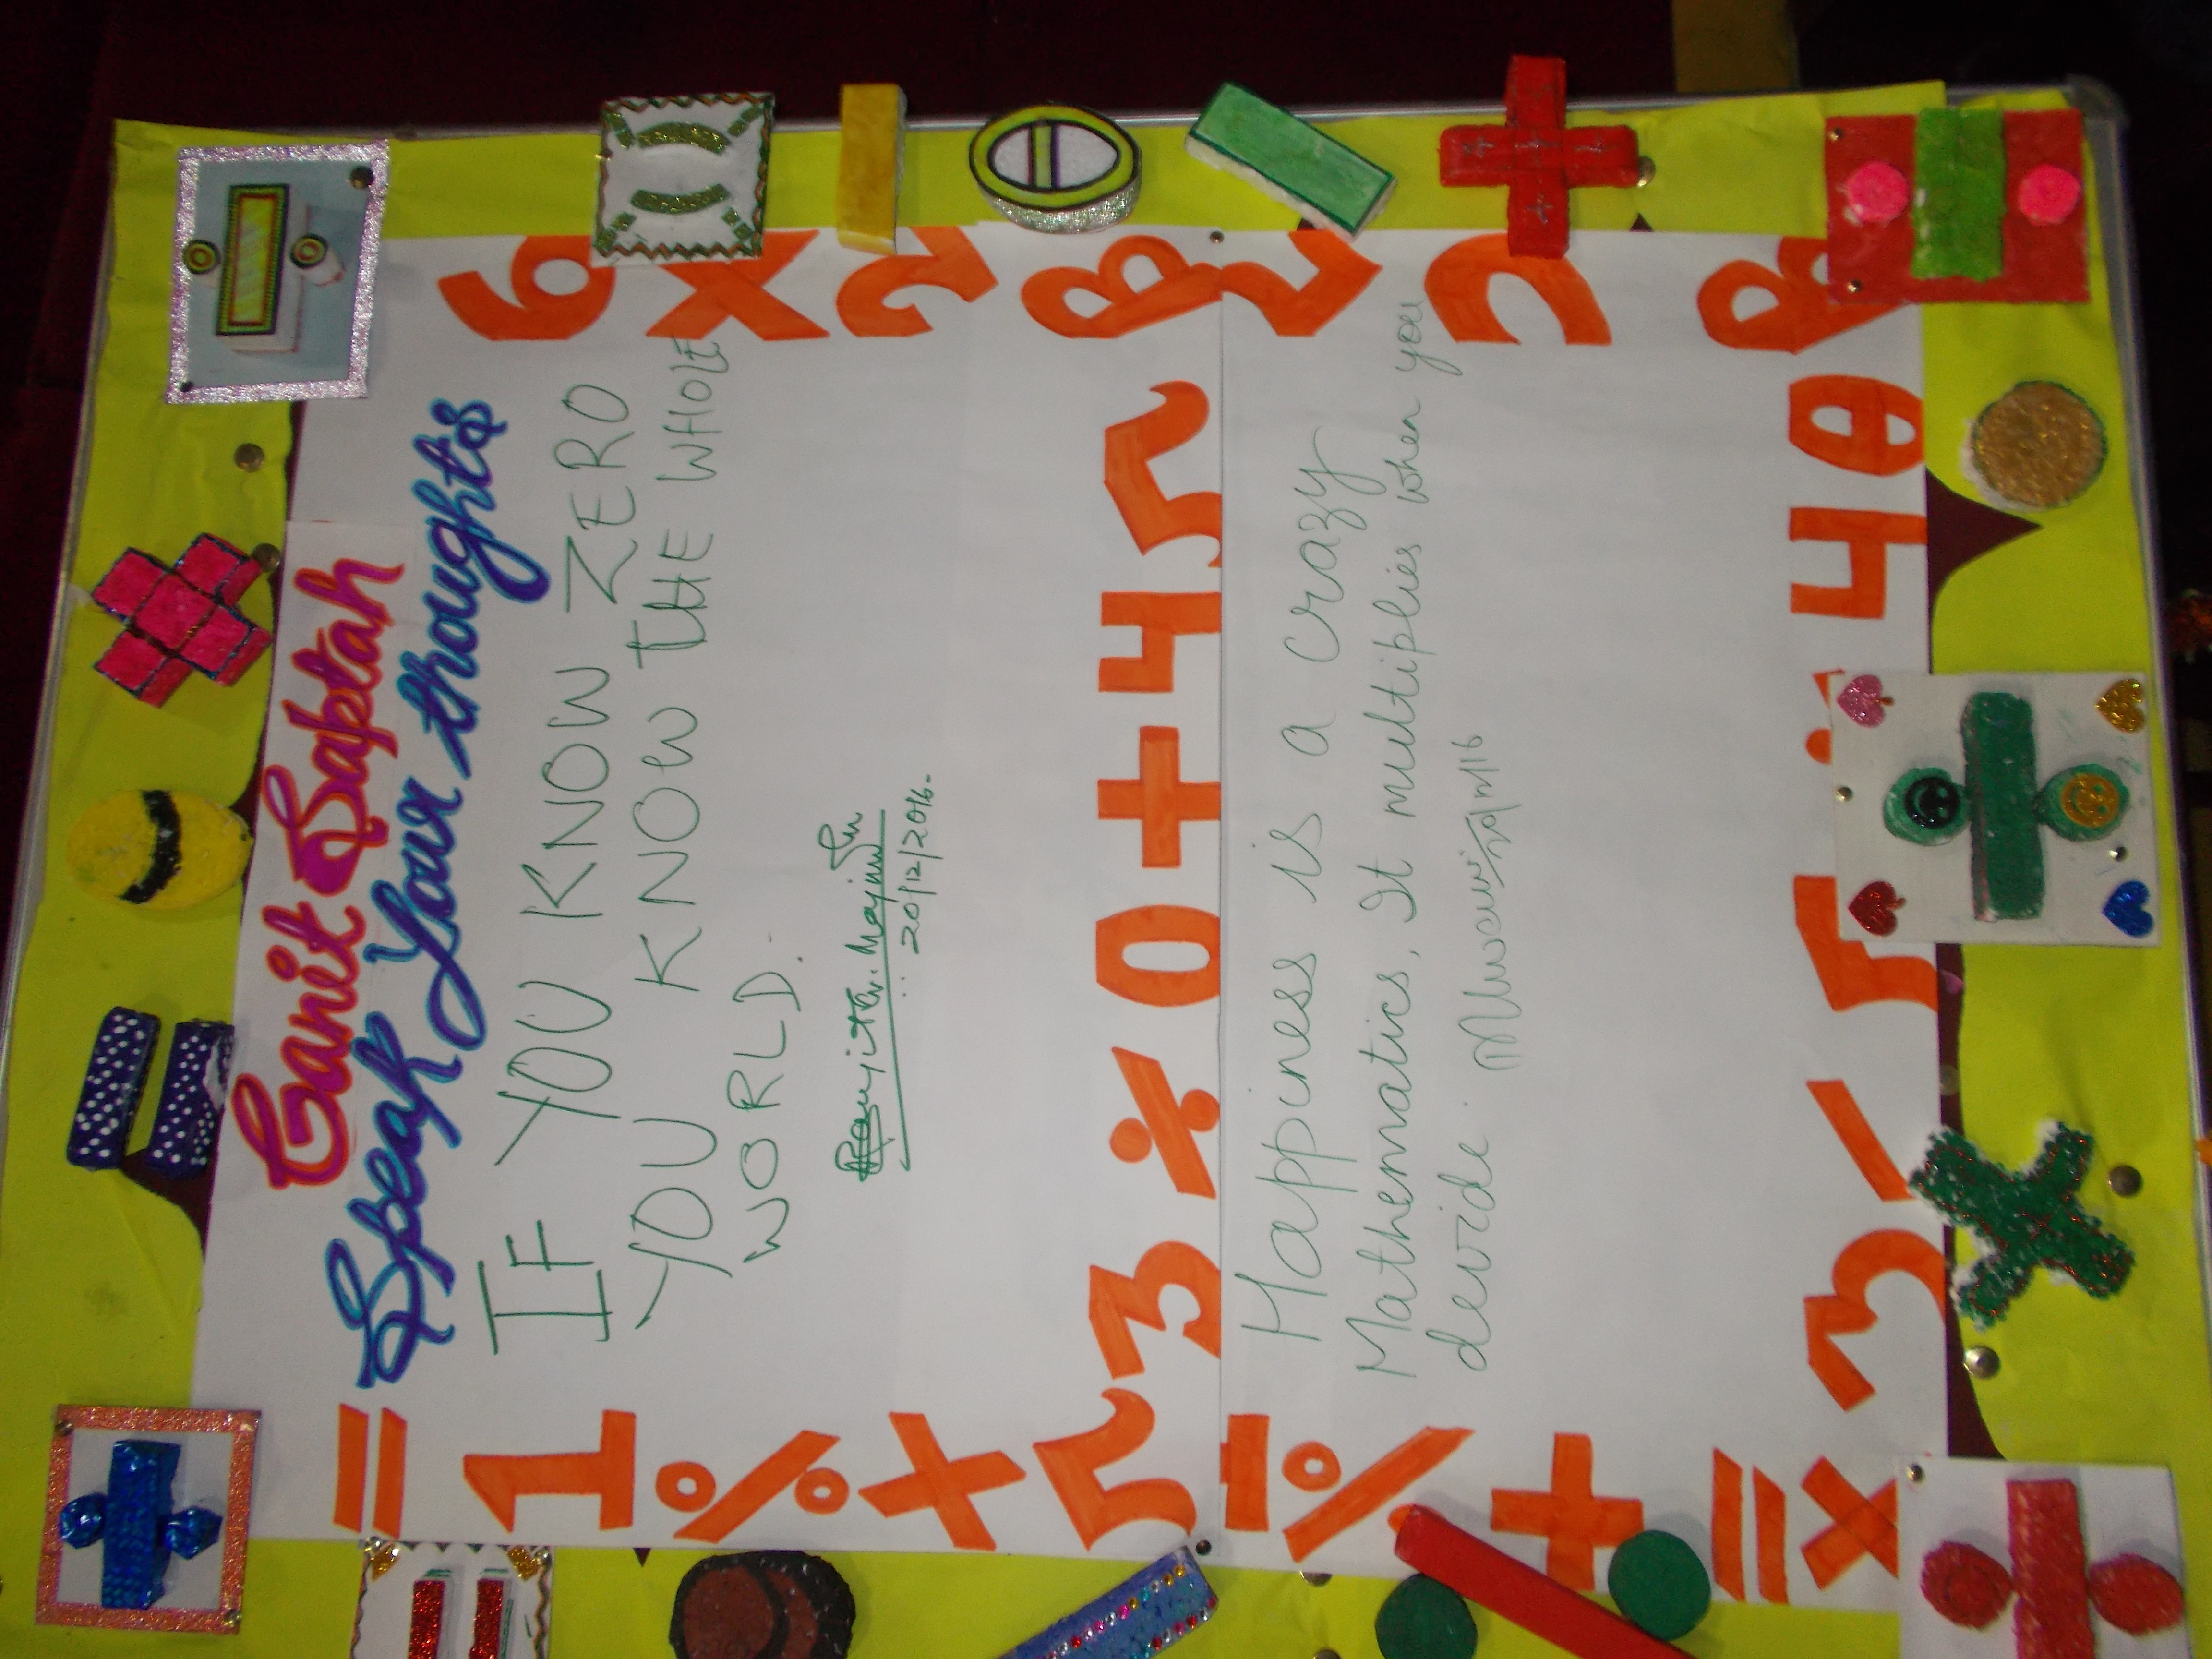 Ganit Saptah
Speak Your thoughts
IF YOU KNOW ZERO
YOU KNOW THE WHOLE
WORLD.
20/12/2016.
5 3 % 0 + 4 5
Happiness is a crazy
Mathemnatics, It multiplies when you
devide.
= 1 % × 5
% + = ×
6 × 5 8
3 / 5 4 0 8